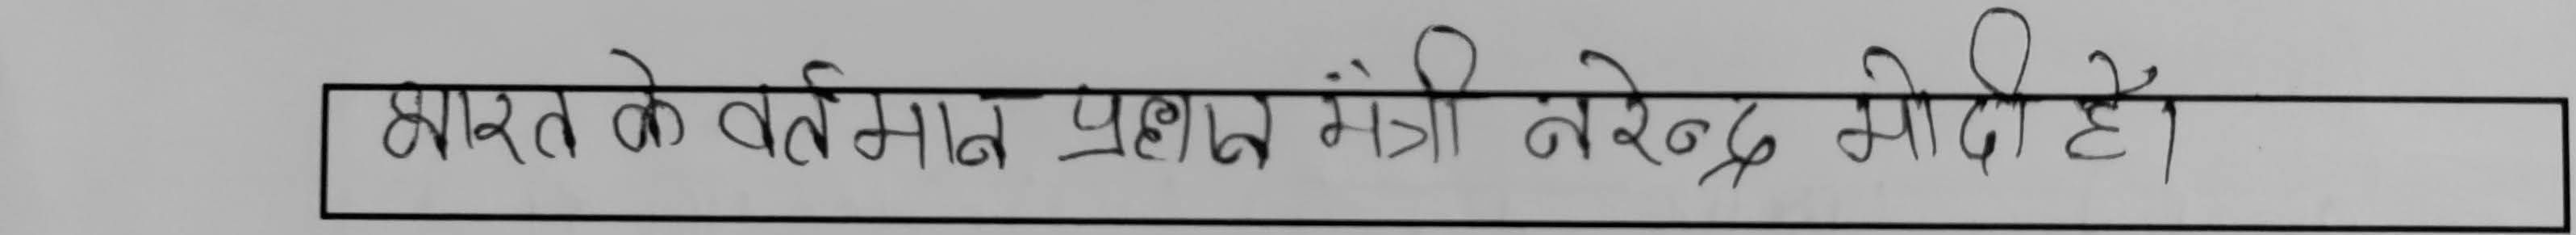 भारत के वर्तमान प्रधान मंत्री नरेन्द्र मोदी हैं।